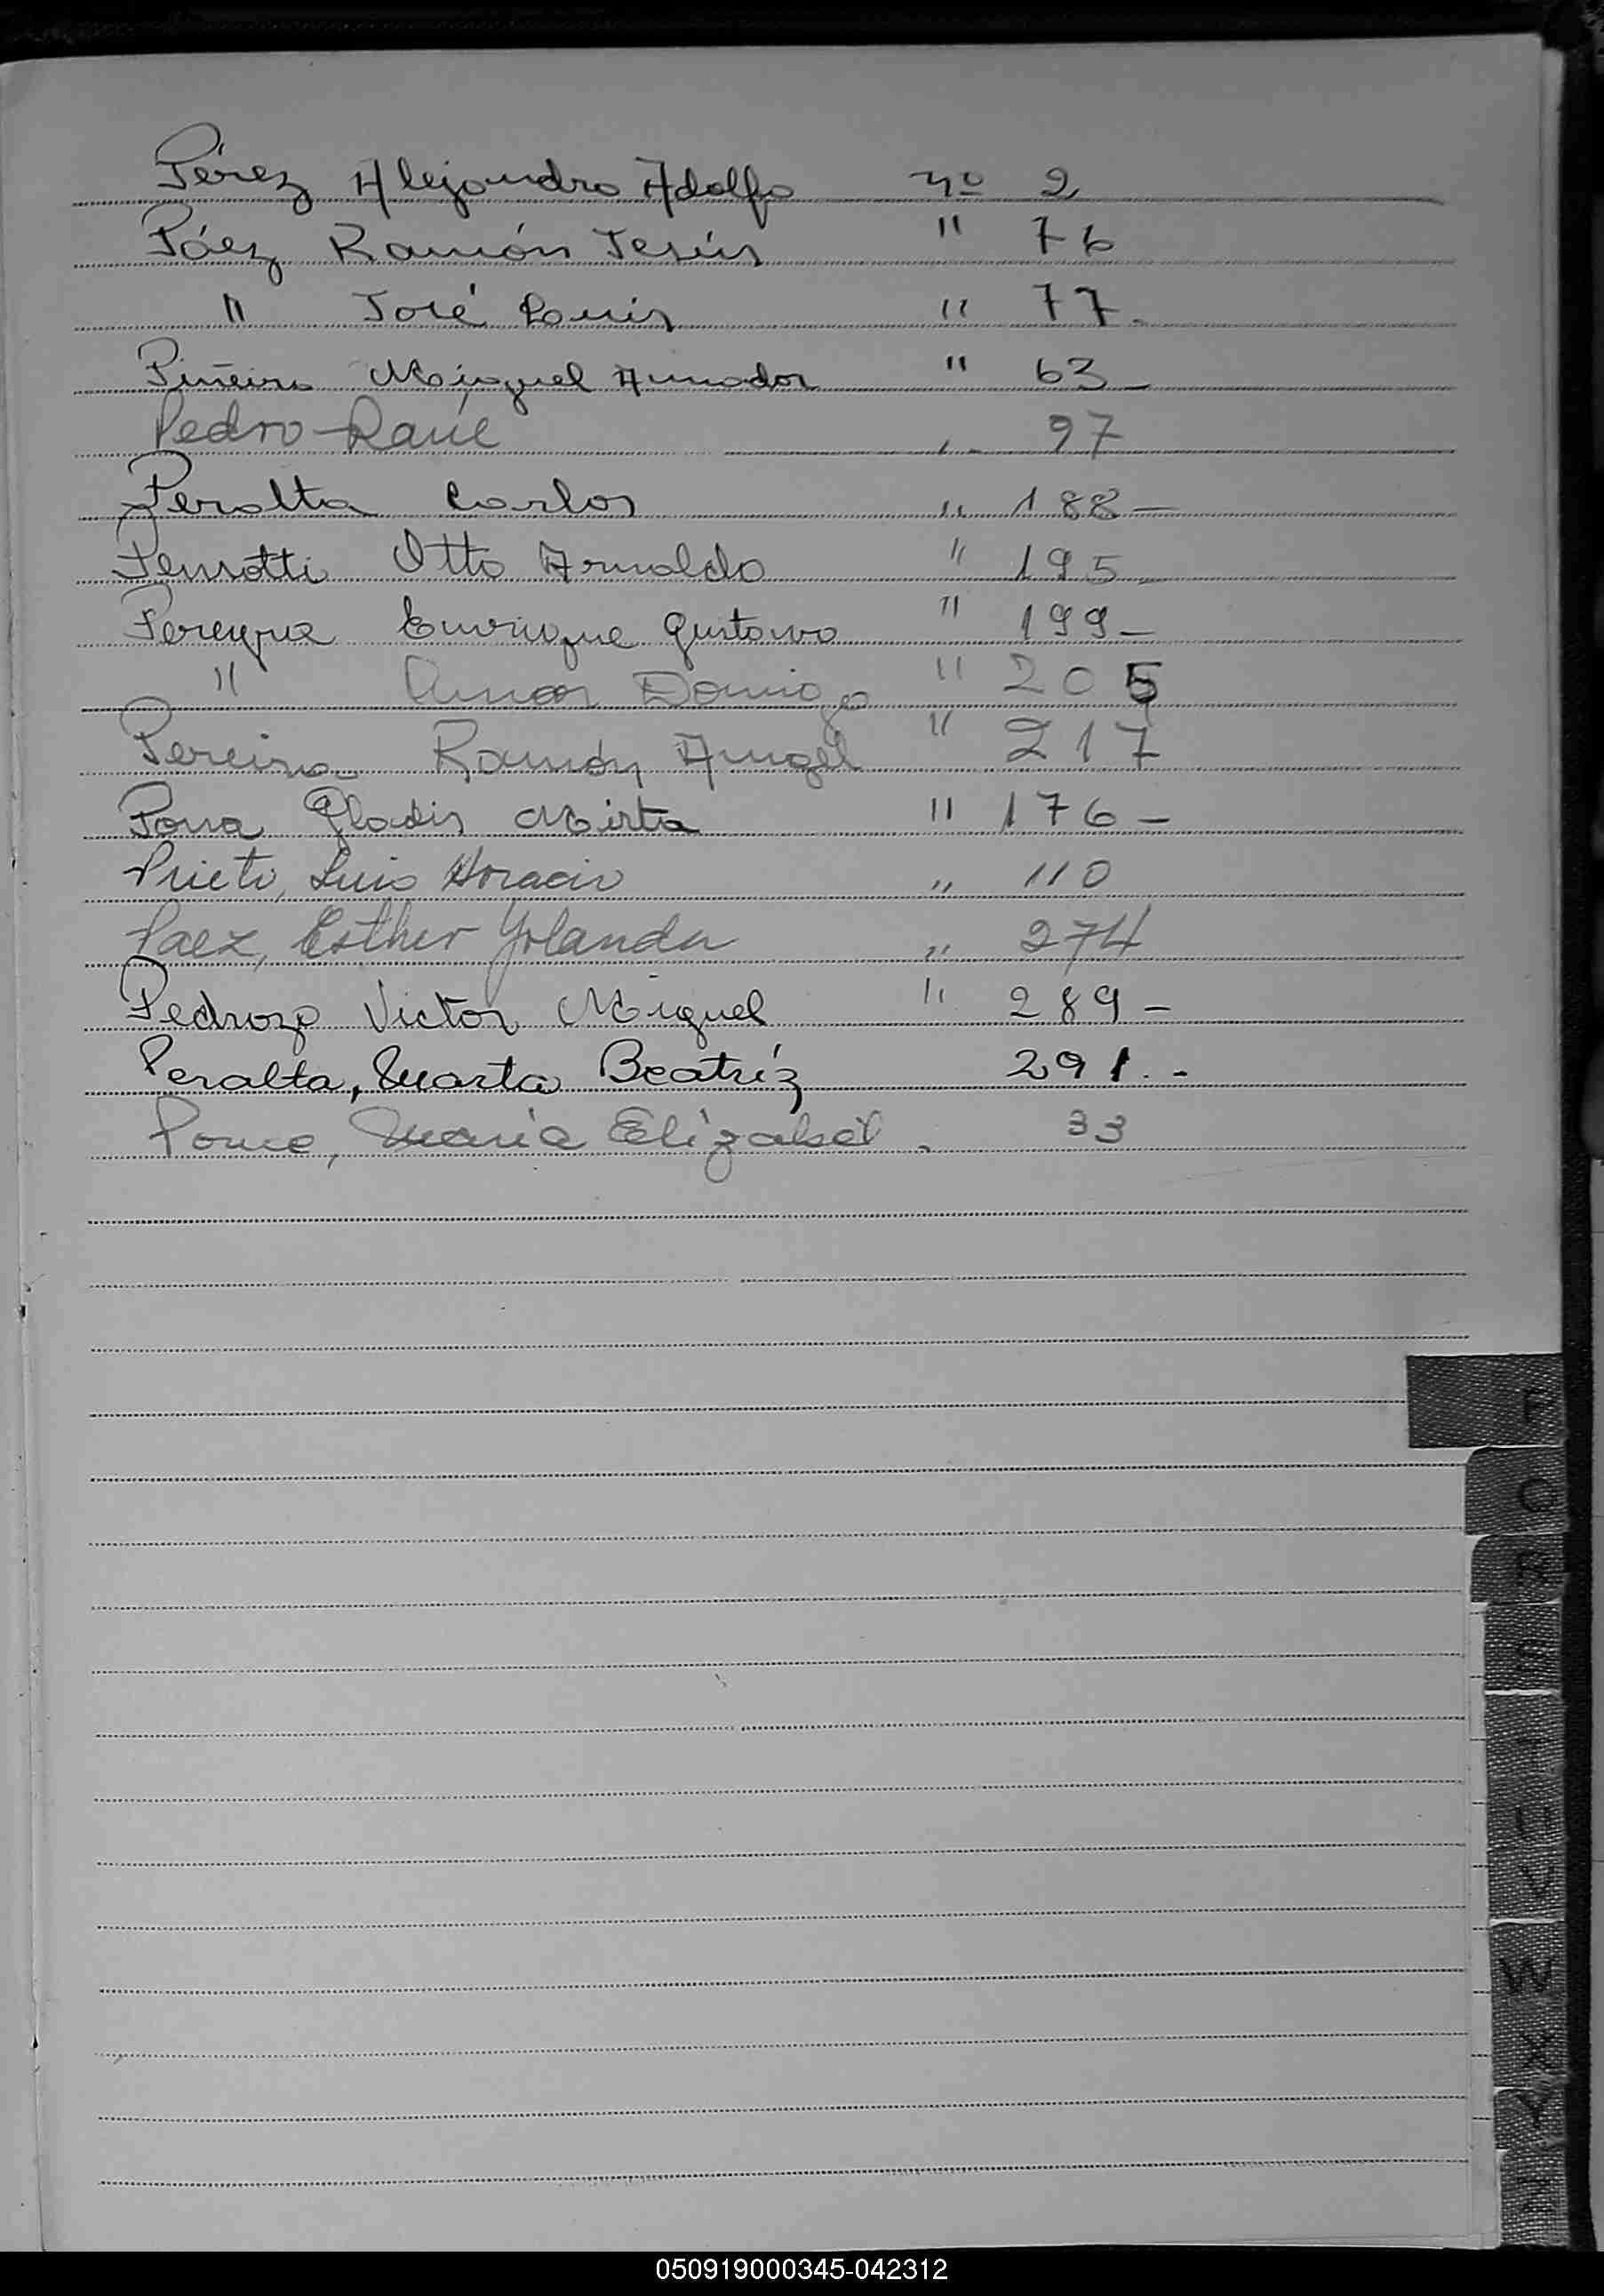 Pérez Alejandro Adolfo nº 2
Páez Ramón Jesús " 76
" José Luis " 77-
Piñeiro Miguel Amador " 63-
Pedro Raúl " 97
Peralta Carlos " 188-
Pensotti Otto Arnoldo " 195-
Pereyra Enrique Gustavo " 199-
" Omar Domingo " 205
Pereira Ramón Angel " 217
Poma Gladis Mirta " 176-
Prieto, Luis Horacio " 110
Paez, Esther Yolanda " 274
Pedrozo Victor Miguel " 289-
Peralta, Marta Beatríz 291.-
María Elizabet. 33
P
Q
R
S
T
U
V
W
X
Y
Z
050919000345-042312